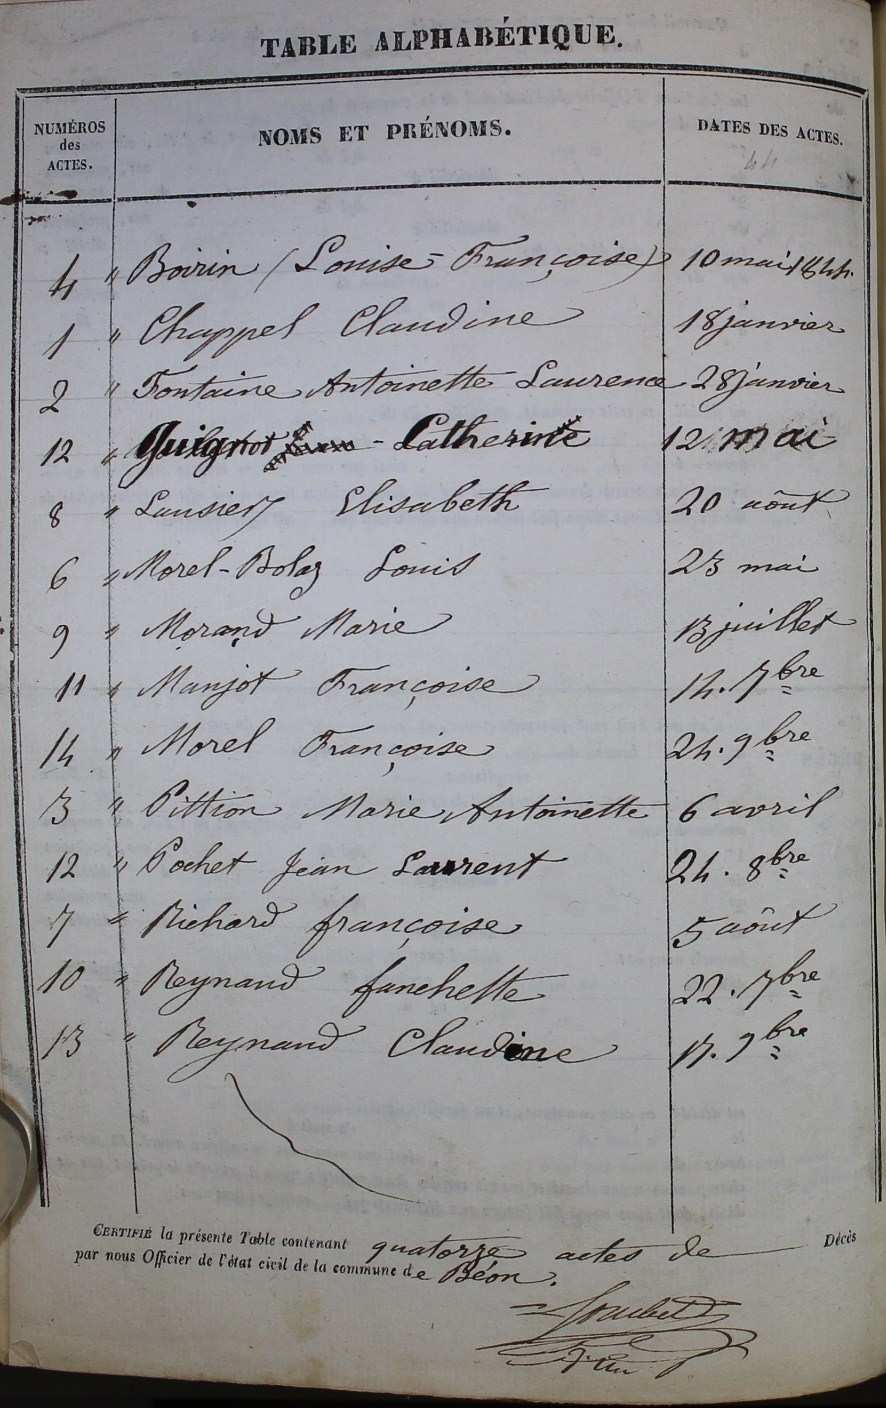 TABLE ALPHABÉTIQUE.
NUMÉROS des ACTES. NOMS ET PRÉNOMS. DATES DES ACTES.
44
4 " Boirin (Louise-Françoise) 10 mai 1844.
1 " Chappel Claudine 18 janvier
2 " Fontaine Antoinette Laurence 28 janvier
12 " Guignot - Catherine 12 mai
8 " Lausiery Elisabeth 20 août
6 " Morel-Bolaz Louis 23 mai
9 " Morand Marie 13 juillet
11 " Manjot Françoise 14. 7bre
14 " Morel Françoise 24. 9bre
3 " Pittion Marie Antoinette 6 avril
12 " Pochet Jean Laurent 24. 8bre
7 " Richard françoise 5 août
10 " Reynaud fanchette 22. 7bre
13 " Reynaud Claudine 17. 9bre
CERTIFIÉ la présente Table contenant quatorze actes de Décès
par nous Officier de l'état civil de la commune de Béon.